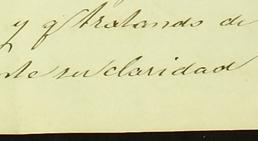 y q' tratando de
nte su claridad